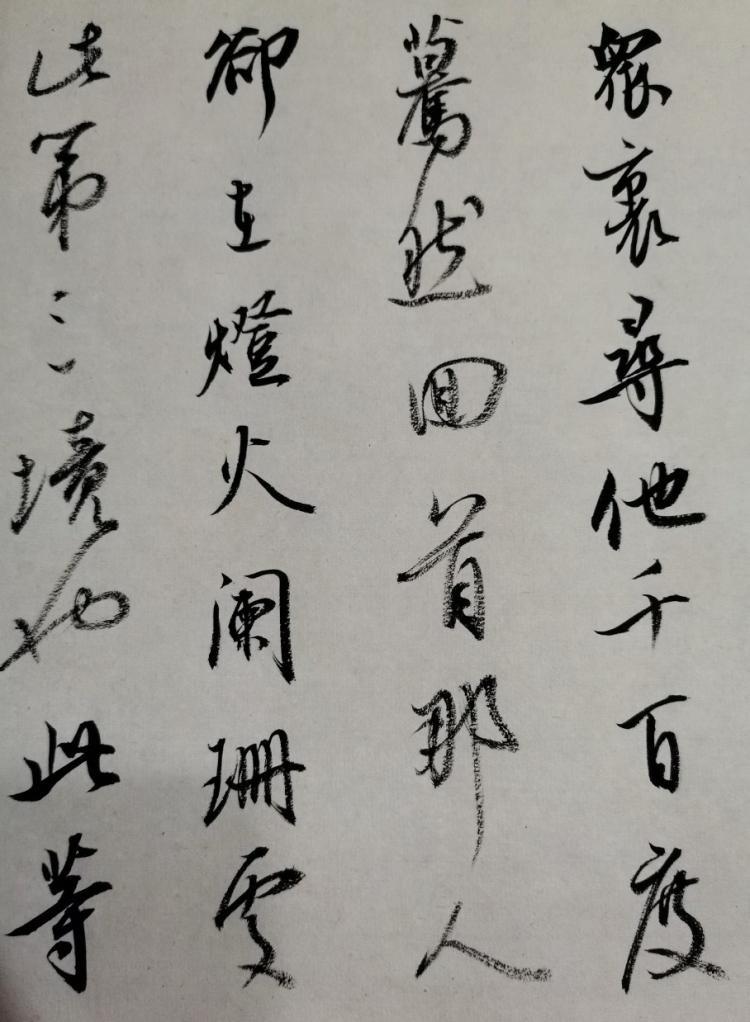 眾裏尋他千百度
驀然回首那人
卻在燈火阑珊處
此第三境也此等